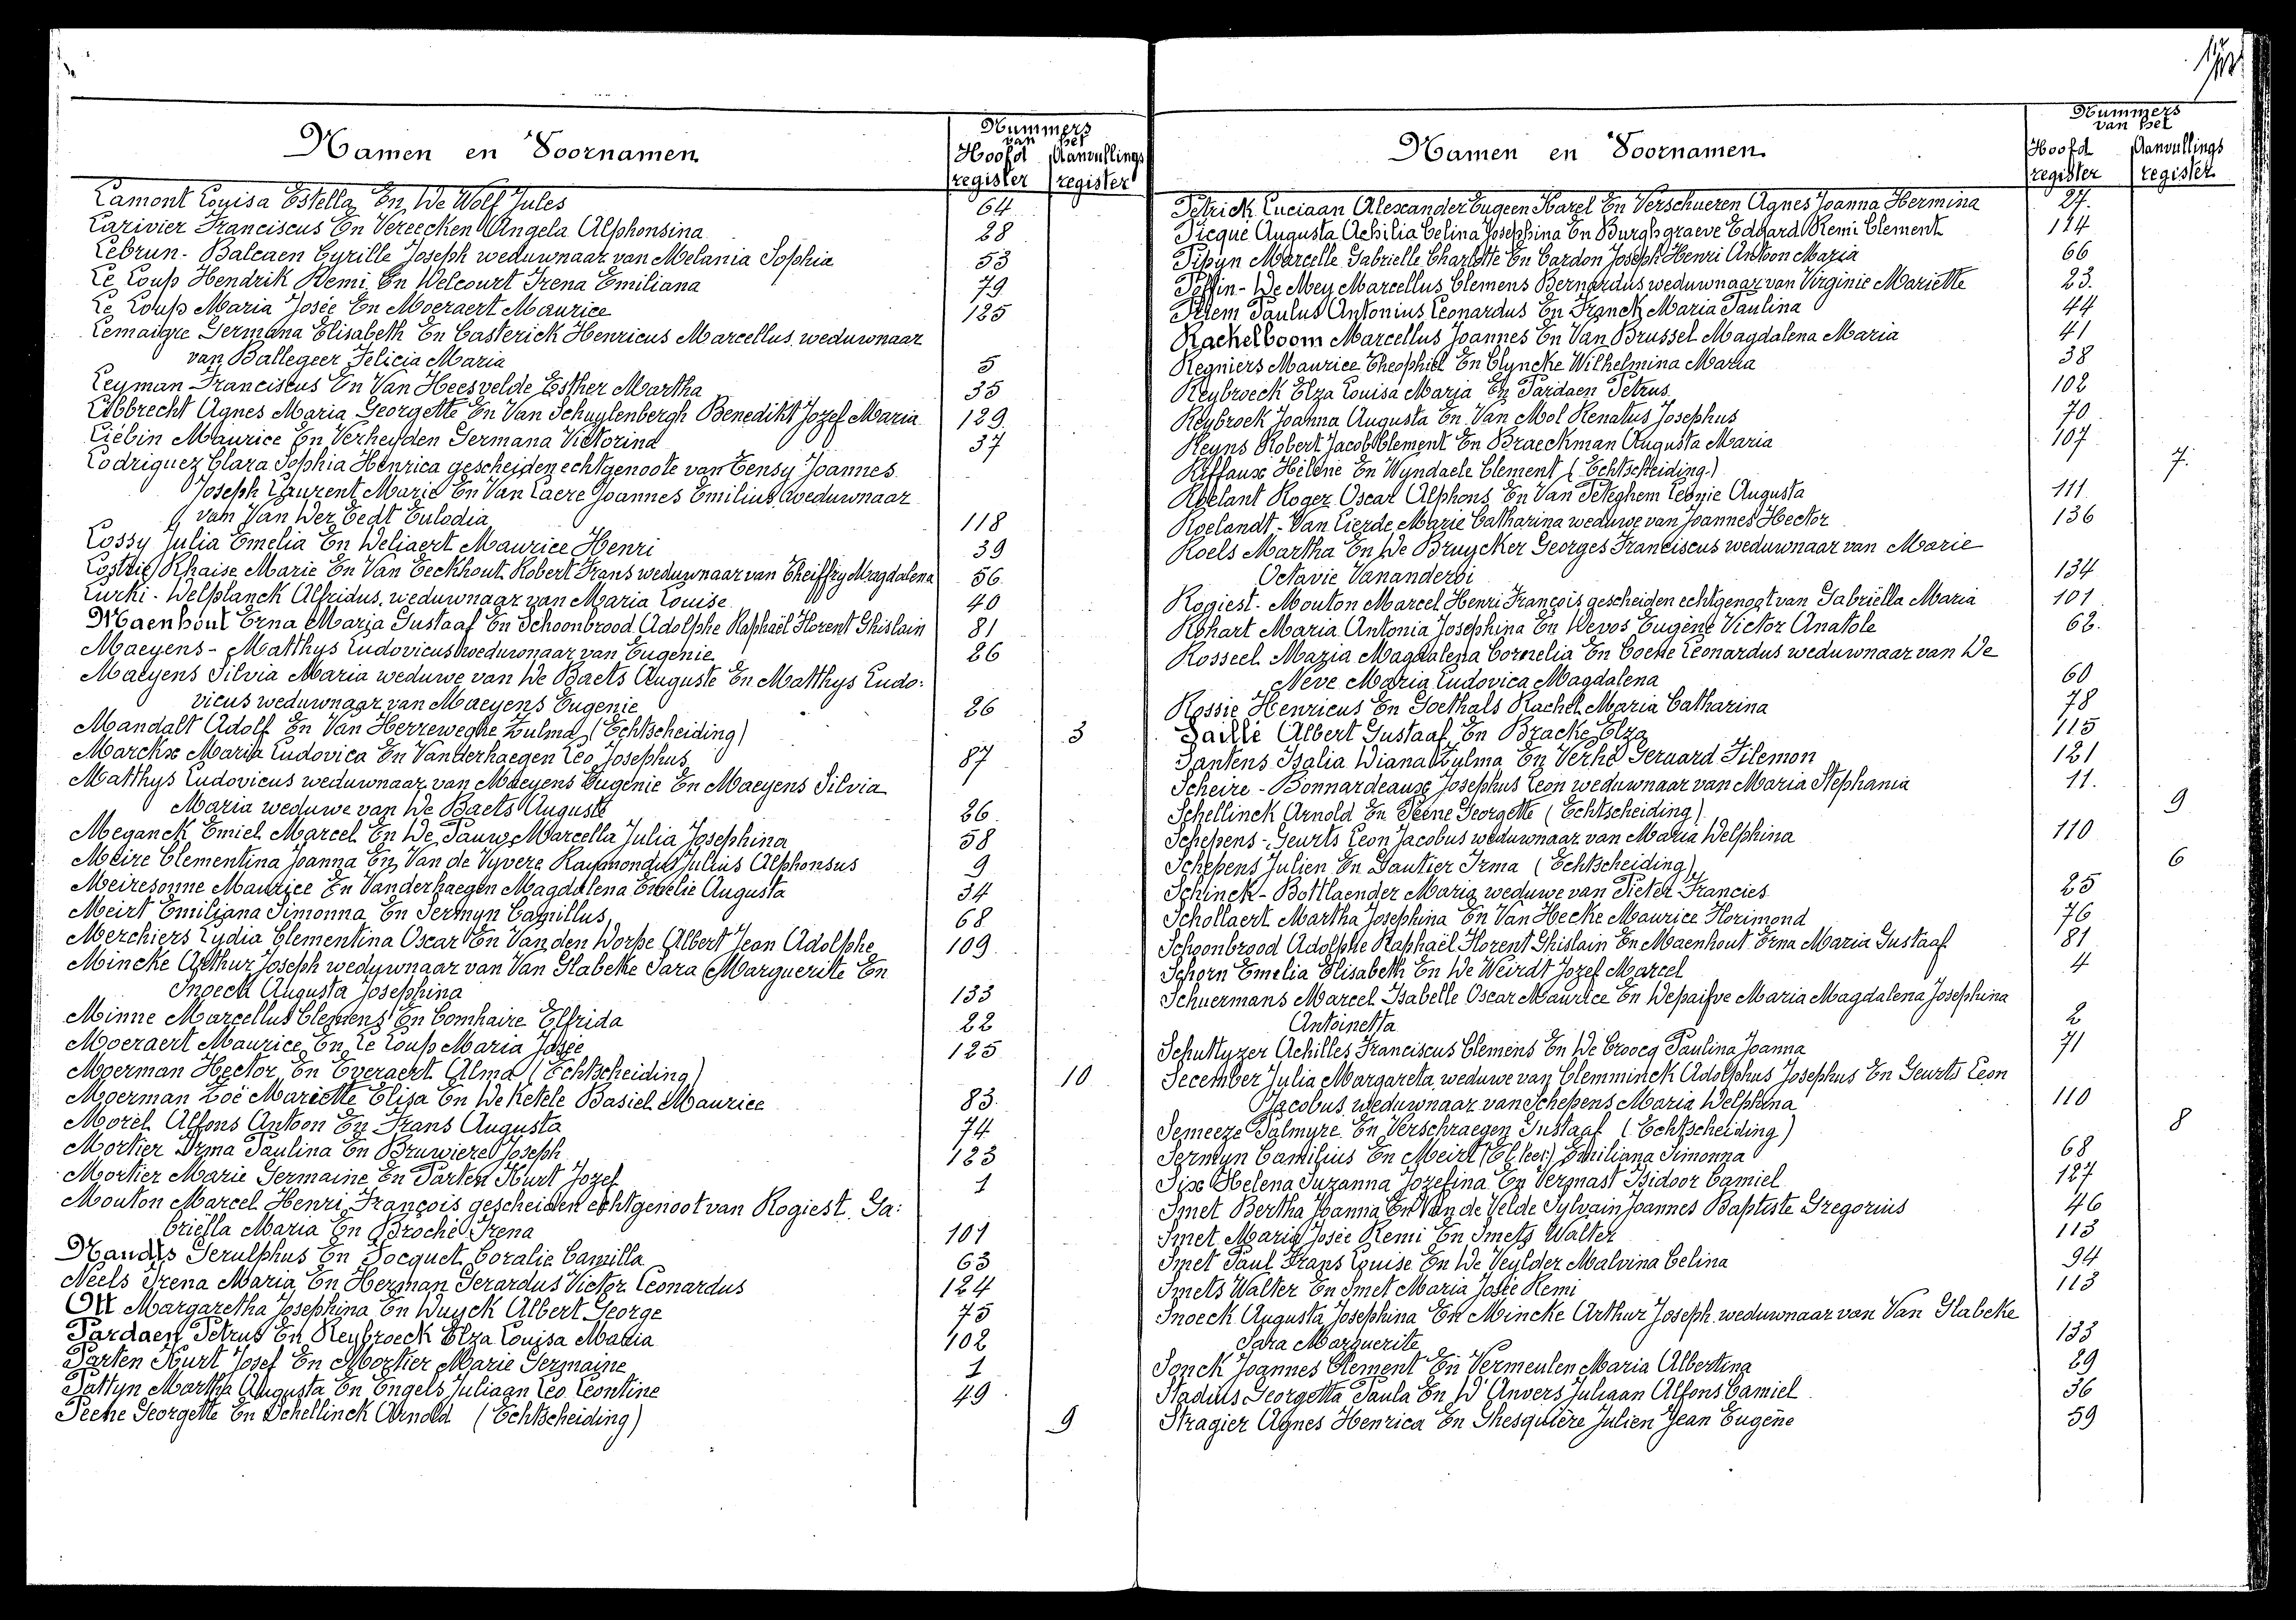 Namen en Voornamen
Nummers
van het
Hoofd register
Aanvullings register
Lamont Louisa Estella En De Wolf Jules 64
Larivier Franciscus En Vereecken Angela Alphonsina 28
Lebrun - Balcaen Cyrille Joseph weduwnaar van Melania Sophia 53
Le Loup Hendrik Remi En Delcourt Irena Emiliana 79
Le Loup Maria Josée En Moeraert Maurice 125
Lemaigre Germana Elisabeth En Casterick Henricus Marcellus weduwnaar
van Ballegeer Felicia Maria 5
Leyman Franciscus En Van Heesvelde Esther Martha 35
Libbrecht Agnes Maria Georgette En Van Schuylenbergh Benedikt Jozef Maria 129
Liébin Maurice En Verheyden Germana Victorina 37
Lodriguez Clara Sophia Henrica gescheiden echtgenoote van Tensy Joannes
Joseph Laurent Marie En Van Laere Joannes Emilius weduwnaar
van Van Der Eedt Eulodia 118
Lossy Julia Emelia En Deliaert Maurice Henri 39
Lostrie Rhaise Marie En Van Eeckhout Robert Frans weduwnaar van Theiffry Magdalena 56
Lurki - Delplanck Alfridus weduwnaar van Maria Louise 40
Maenhout Erna Maria Gustaaf En Schoonbrood Adolphe Raphaël Florent Ghislain 81
Maeyens - Matthys Ludovicus weduwnaar van Eugenie 26
Maeyens Silvia Maria weduwe van De Baets Auguste En Matthys Ludo:
vicus weduwnaar van Maeyens Eugenie 26
Mandalt Adolf En Van Herreweghe Zulma (Echtscheiding) 3
Marckx Maria Ludovica En Vanderhaegen Leo Josephus 87
Matthys Ludovicus weduwnaar van Maeyens Eugenie En Maeyens Silvia
Maria weduwe van De Baets Auguste 26
Meganck Emiel Marcel En De Pauw Marcella Julia Josephina 58
Meire Clementina Joanna En Van de Vyvere Raymondus Julius Alphonsus 9
Meiresonne Maurice En Vanderhaegen Magdalena Emelie Augusta 34
Meirt Emiliana Simonna En Sermyn Camillus 68
Merchiers Lydia Clementina Oscar En Van den Dorpe Albert Jean Adolphe 109
Mincke Arthur Joseph weduwnaar van Van Glabeke Sara Marguerite En
Snoeck Augusta Josephina 133
Minne Marcellus Clemens En Comhaire Elfrida 22
Moeraert Maurice En Le Loup Maria Josée 125
Moerman Hector En Everaert Alma (Echtscheiding) 10
Moerman Zoë Mariette Elisa En De Ketele Basiel Maurice 83
Morel Alfons Antoon En Frans Augusta 74
Mortier Irma Paulina En Bruwiere Joseph 123
Mortier Marie Germaine En Parten Kurt Jozef 1
Mouton Marcel Henri François gescheiden echtgenoot van Rogiest Ga:
briëlla Maria En Broché Irena 101
Nandts Gerulphus En Docquet Coralie Camilla 63
Neels Irena Maria En Herman Gerardus Victor Leonardus 124
Ott Margaretha Josephina En Duyck Albert George 75
Pardaen Petrus En Reybroeck Elza Louisa Maria 102
Parten Kurt Josef En Mortier Marie Germaine 1
Pattyn Martha Augusta En Engels Juliaan Leo Leontine 49
Peene Georgette En Schellinck Arnold (Echtscheiding) 9
Namen en Voornamen
Nummers
van het
Hoofd register
Aanvullings register
Petrick Luciaan Alexander Eugeen Karel En Verschueren Agnes Joanna Hermina 27
Picque Augusta Achilia Celina Josephina En Burghgraeve Edgard Remi Clement 114
Pipyn Marcelle Gabrielle Charlotte En Cardon Joseph Henri Antoon Maria 66
Poffin - De Mey Marcellus Clemens Bernardus weduwnaar van Virginie Mariette 23
Priem Paulus Antonius Leonardus En Franck Maria Paulina 44
Rachelboom Marcellus Joannes En Van Brussel Magdalena Maria 41
Regniers Maurice Theophiel En Clyncke Wilhelmina Maria 38
Reybroeck Elza Louisa Maria En Pardaen Petrus 102
Reybroek Joanna Augusta En Van Mol Renatus Josephus 70
Reyns Robert Jacob Clement En Braeckman Augusta Maria 107
Riffaux Hélène En Wyndaele Clement (Echtscheiding) 7
Roelant Roger Oscar Alphons En Van Peteghem Leonie Augusta 111
Roelandt - Van Lierde Marie Catharina weduwe van Joannes Hector 136
Roels Martha En De Bruycker Georges Franciscus weduwnaar van Marie
Octavie Vananderoi 134
Rogiest - Mouton Marcel Henri François gescheiden echtgenoot van Gabriëlla Maria 101
Rohart Maria Antonia Josephina En Devos Eugène Victor Anatole 62
Rosseel Maria Magdalena Cornelia En Coene Leonardus weduwnaar van De
Neve Maria Ludovica Magdalena 60
Rossie Henricus En Goethals Rachel Maria Catharina 78
Saillé Albert Gustaaf En Bracke Elza 115
Santens Isalia Diana Zulma En Verhé Geraard Filemon 121
Scheire - Bonnardeaux Josephus Leon weduwnaar van Maria Stephania 11
Schellinck Arnold En Peene Georgette (Echtscheiding) 9
Schepens - Geurts Leon Jacobus weduwnaar van Maria Delphina 110
Schepens Julien En Gautier Irma (Echtscheiding) 6
Schinck - Bottlaender Maria weduwe van Pieter Francies 25
Schollaert Martha Josephina En Van Hecke Maurice Florimond 76
Schoonbrood Adolphe Raphaël Florent Ghislain En Maenhout Erna Maria Gustaaf 81
Schorn Emelia Elisabeth En De Weirdt Jozef Marcel 4
Schuermans Marcel Isabelle Oscar Maurice En Depaifve Maria Magdalena Josephina
Antoinetta 2
Schuttyzer Achilles Franciscus Clemens En De Croocq Paulina Joanna 71
Secember Julia Margareta weduwe van Clemminck Adolphus Josephus En Geurts Leon
Jacobus weduwnaar van Schepens Maria Delphina 110
Semeeze Palmyre En Verschraegen Gustaaf (Echtscheiding) 8
Sermyn Camilius En Meirt Emiliana Simonna 68
Six Helena Suzanna Jozefina En Vermast Isidoor Camiel 127
Smet Bertha Joanna En Van de Velde Sylvain Joannes Baptiste Gregorius 46
Smet Maria Josée Remi En Smets Walter 113
Smet Paul Frans Louise En De Veylder Malvina Celina 94
Smets Walter En Smet Maria Josée Remi 113
Snoeck Augusta Josephina En Mincke Arthur Joseph weduwnaar van Van Glabeke
Sara Marguerite 133
Sonck Joannes Clement En Vermeulen Maria Albertina 29
Stadius Georgetta Paula En D'Anvers Juliaan Alfons Camiel 36
Stragier Agnes Henrica En Ghesquière Julien Jean Eugène 59